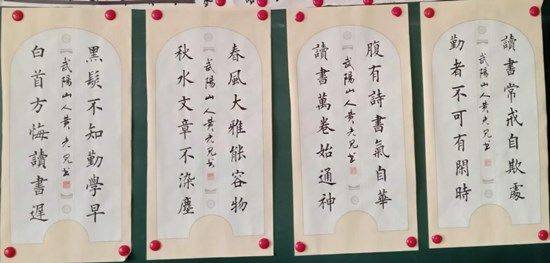 讀書常戒自欺處
武陽山人黄
勤者不可有閑時
腹有詩書氣自華
武陽山人黄
讀書萬卷始通神
春風大雅能容物
武陽山人黄
秋水文章不染塵
黑髮不知勤學早
武陽山人黄
白首方悔讀書遲